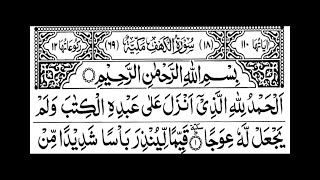 اٰیاتها ١١٠ (١٨) سُوْرَةُ الْكَهْفِ مَكِّيَّةٌ (٦٩) رکوعاتها ١٢
بِسْمِ اللّٰهِ الرَّحْمٰنِ الرَّحِيْمِ
اَلْحَمْدُ لِلّٰهِ الَّذِيْۤ اَنْزَلَ عَلٰى عَبْدِهِ الْكِتٰبَ وَلَمْ
يَجْعَلْ لَّهٗ عِوَجًا ١ قَيِّمًا لِّيُنْذِرَ بَاْسًا شَدِيْدًا مِّنْ